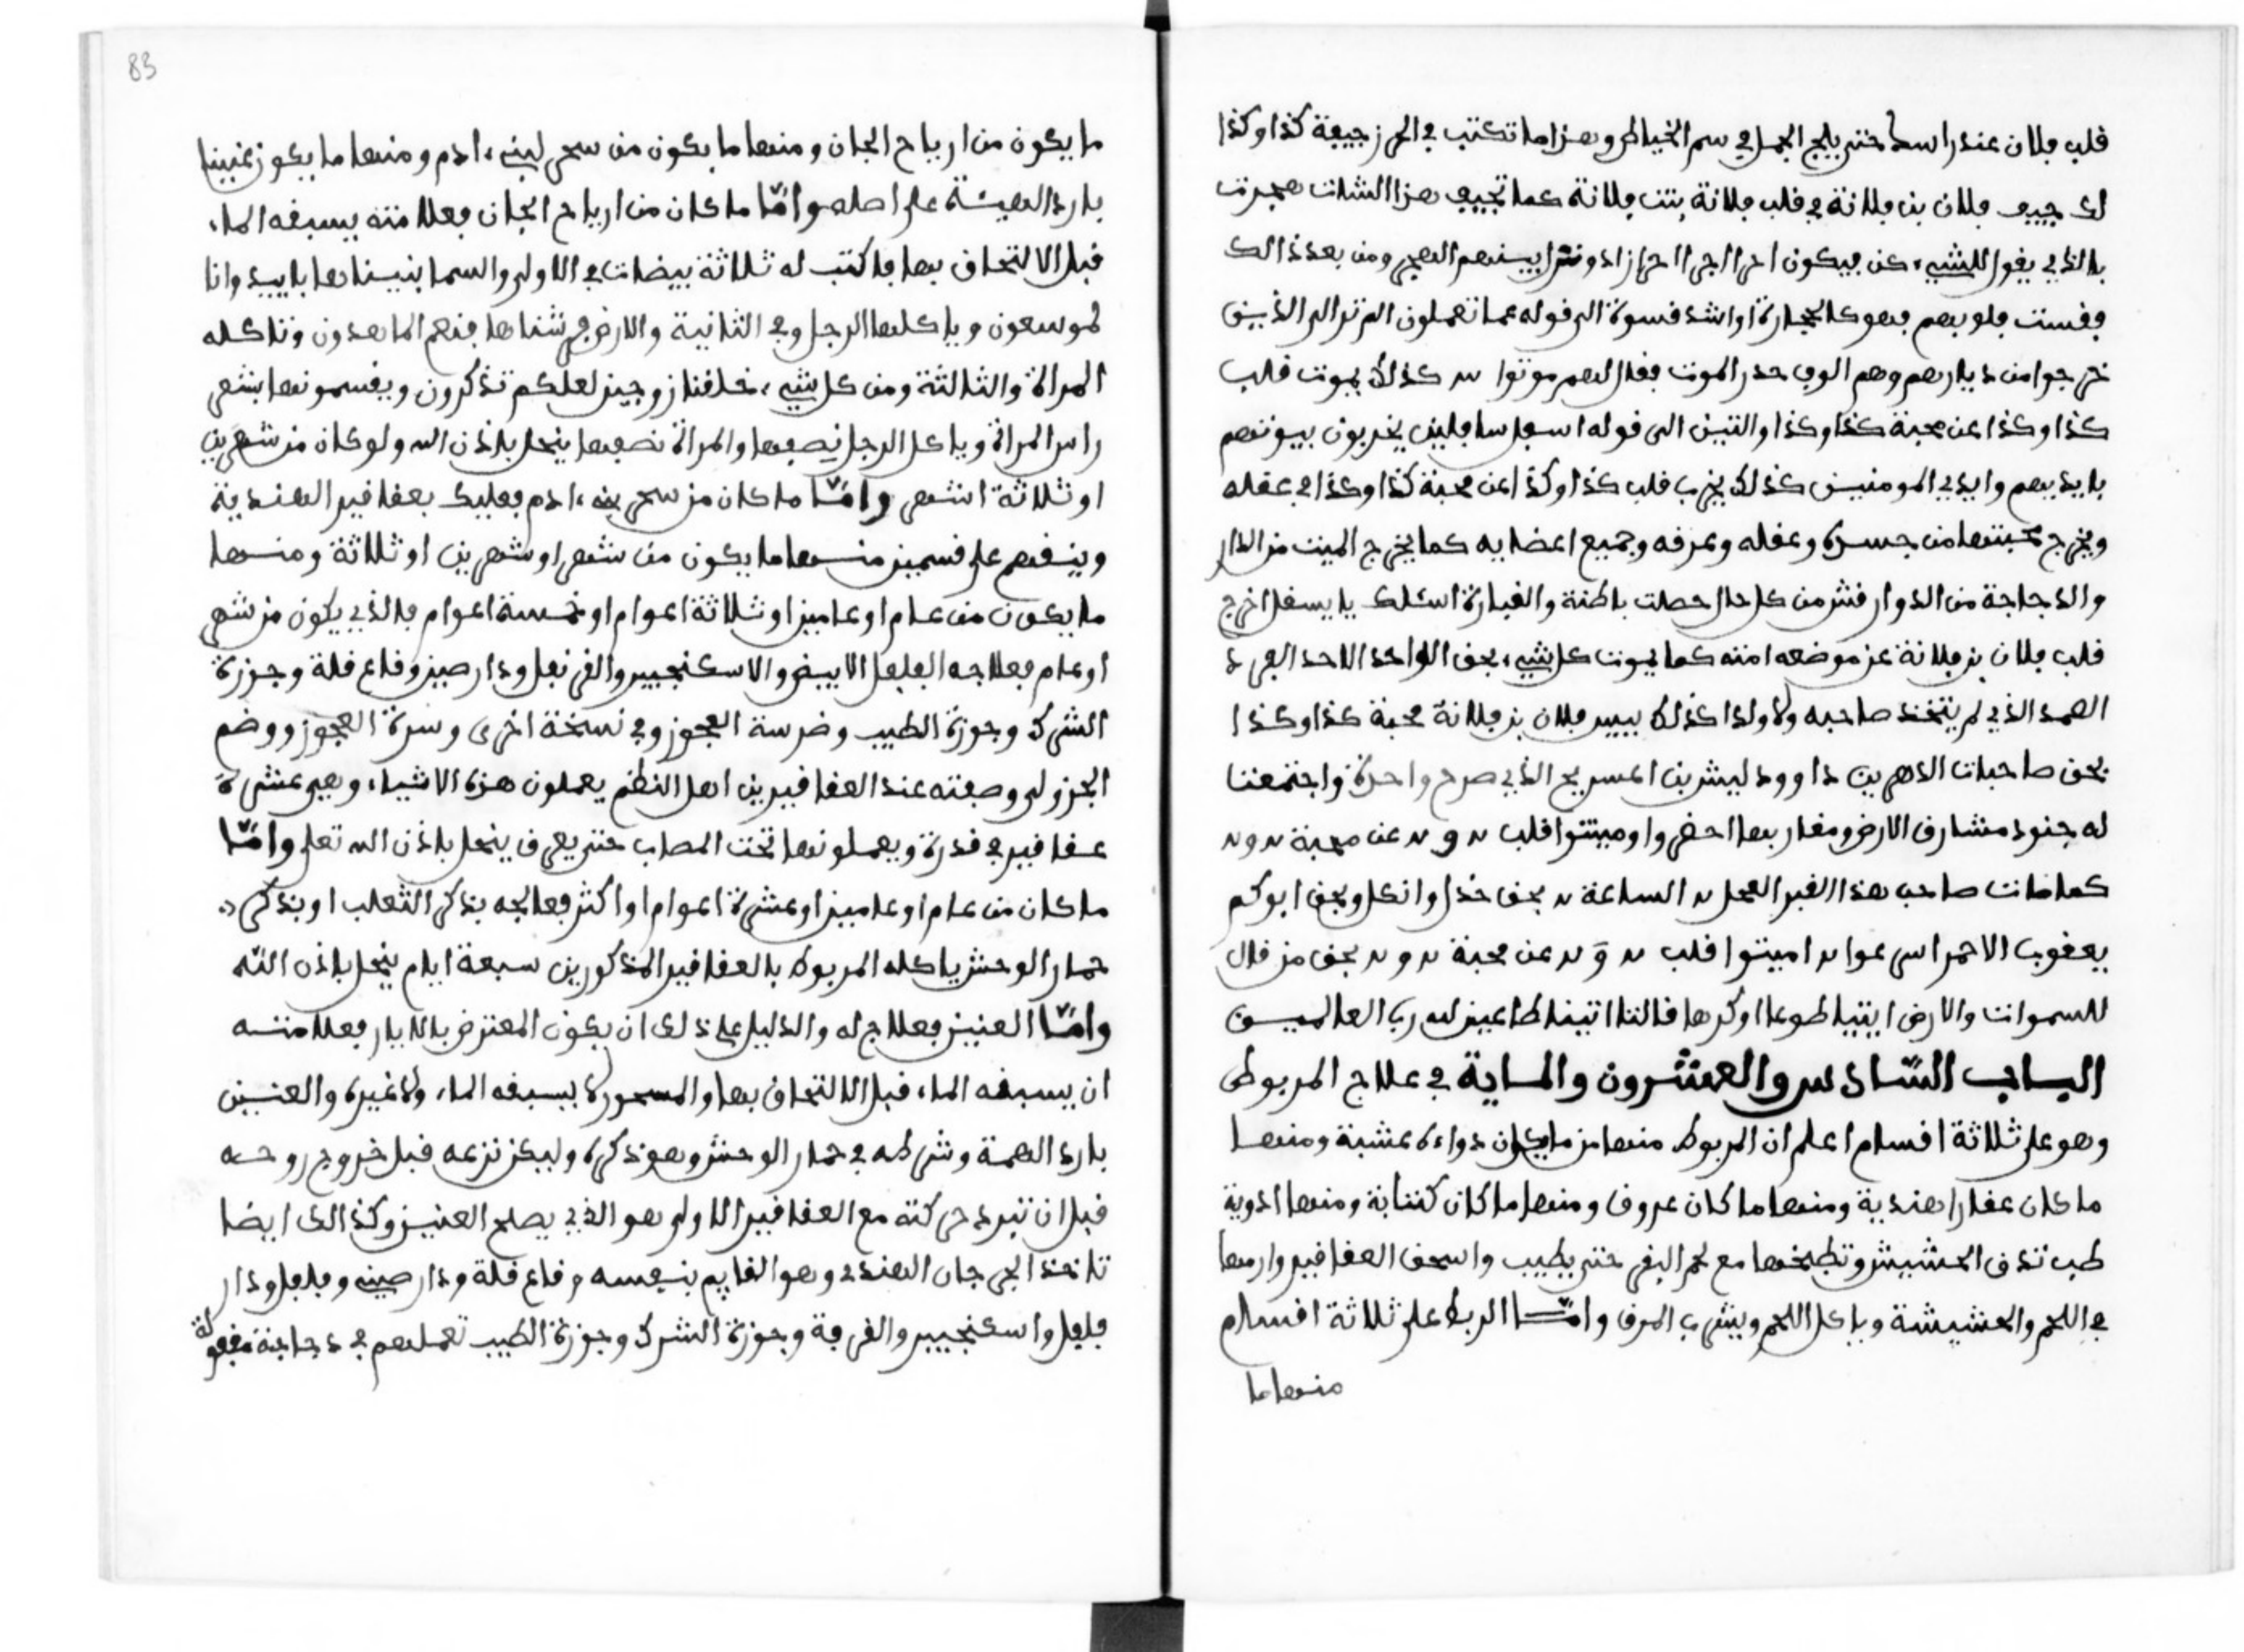 قلب فلان عند راسه حتى يلج الجمل في سم الخياط وهذا ما تكتب في الحرز جيعة كذا وكذا
لك جييف فلان بن فلانة في قلب فلانة بنت فلانة كما تجيف هذا الشات هجرت
بالذي يقول للشيء كن فيكون ومن بعد ذالك
فقست قلوبهم فهو كالحجارة او اشد قسوة الى قوله عما تعملون الم تر الى الذين
خرجوا من ديارهم وهم الوف حذر الموت فقال لهم موتوا كذلك يموت قلب
كذا وكذا عن محبة كذا وكذا والتين الى قوله اسفل سافلين يخربون بيوتهم
بايديهم وايدي المومنين كذلك يخرب قلب كذا وكذا عن محبة كذا وكذا في عقله
ويخرج محبتها من جسده وعقله وعرفه وجميع اعضايه كما يخرج الميت من الدار
والدجاجة من الدوار فش من كل حال حصلت باطنة والغبارة اسئلك يا يسفل اخرج
قلب فلان بن فلانة عن موضعه امته كما يموت كل شيء بحق الواحد الاحد الفرد
الصمد الذي لم يتخذ صاحبه ولا ولدا كذلك ييبس فلان بن فلانة محبة كذا وكذا
بحق صاحبات الدهرين داوود ليشرين المسريح الذي صرح واحدة واجتمعنا
له جنود مشارق الارض ومغاربها احضروا وميتوا قلب ں و ں عن محبة ں و ں
كما مات صاحب هذا القبر العجل ں الساعة ں بحق خذا وانكل وبحق ابوكم
يعقوب الاحمر اسرعوا ں اميتوا قلب ں و ں عن محبة ں و ں بحق من قال
للسموات والارض ايتيا طوعا او كرها قالتا اتينا طاعين لله رب العالمين
الباب السادس والعشرون والماية في علاج المربوط
وهو على ثلاثة اقسام اعلم ان المربوط منها من ما يكون دواءه عشبة ومنها
ما كان عقارا هندية ومنها ما كان عروق ومنها ما كان كتابة ومنها ادوية
طب تدق الحشيش وتطبخها مع لحم البقر حتى يطيب واسحق العقاقير وارمها
في اللحم والحشيشة وياكل اللحم ويشرب المرق واما الربط على ثلاثة اقسام
منها ما
83
ما يكون من ارياح الجان ومنها ما يكون من سحر لبني ادم ومنها ما يكون عنينا
بارد الهيشة على اصله واما ما كان من ارياح الجان فعلامته يسبقه الماء
قبل الالتحاق بها فاكتب له ثلاثة بيضات في الاولى والسما بنيناها باييد وانا
لموسعون وياكلها الرجل وفي الثانية والارض فرشناها فنعم الماهدون وتاكله
المراة والثالثة ومن كل شيء خلقنا زوجين لعلكم تذكرون ويقسمونها بشعر
راس المراة وياكل الرجل نصفها والمراة نصفها ينحل باذن الله ولو كان من شهرين
او ثلاثة اشهر واما ما كان من سحر بني ادم فعليك بعقاقير الهندية
وينقسم على قسمين منها ما يكون من شهر او شهرين او ثلاثة ومنها
ما يكون من عام او عامين او ثلاثة اعوام او خمسة اعوام فالذي يكون من شهر
او عام فعلاجه الفلفل الابيض والاسكنجبير والقرنفل ودار صين وقاع قلة وجوزة
الشرك وجوزة الطيب وضرسة العجوز وفي نسخة اخرى وسرة العجوز ووضم
الجزولي وصفته عند العقاقيرين اهل النظم يعملون هذه الاشياء وهي عشرة
عقاقير في قدرة ويعملونها تحت المصاب حتى يعرق ينحل باذن الله تعلى واما
ما كان من عام او عامين او عشرة اعوام او اكثر فعالجه بذكر الثعلب او بذكر
حمار الوحش ياكله المربوط بالعقاقير المذكورين سبعة ايام ينحل باذن الله
واما العنين فعلاج له والدليل على ذلك ان يكون المعترض بالاديار فعلامته
ان يسبقه الماء قبل الالتحاق بها والمسحور لا يسبقه الماء ولا غيره والعنين
بارد الهمة وشرطه في حمار الوحش وهو ذكره وليكن نزعه قبل خروج روحه
قبل ان تبرد حركته مع العقاقير الاولى هو الذي يصلح العنين وكذالك ايضا
تاخذ الجرجان الهندي وهو القايم بنفسه وقاع قلة ودار صيني وفلفل ودار
فلفل واسكنجبير والقرفة وجوزة الشرك وجوزة الطيب تعملهم في دجاجة مفولة